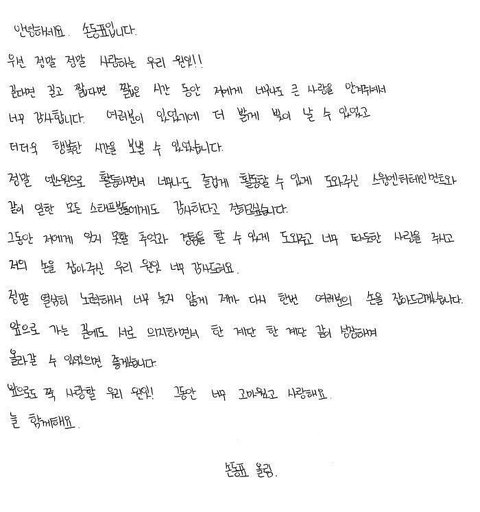 안녕하세요. 손동표입니다.
우선 정말 정말 사랑하는 우리 원잇!!
길다면 길고 짧다면 짧은 시간 동안 저에게 너무나도 큰 사랑을 안겨줘서
너무 감사합니다. 여러분이 있었기에 더 밝게 빛이 날 수 있었고
더더욱 행복한 시간을 보낼 수 있었습니다.
정말 엑스원으로 활동하면서 너무나도 즐겁게 활동할 수 있게 도와주신 스윙엔터테인먼트와
같이 일한 모든 스태프분들에게도 감사하다고 전하고싶습니다.
그동안 저에게 잊지 못할 추억과 경험을 할 수 있게 도와주고 너무 따듯한 사랑을 주시고
저의 손을 잡아주신 우리 원잇 너무 감사드려요.
정말 열심히 노력해서 너무 늦지 않게 제가 다시 한번 여러분의 손을 잡아드리겠습니다.
앞으로 가는 길에도 서로 의지하면서 한 계단 한 계단 같이 성장하며
올라갈 수 있었으면 좋겠습니다.
앞으로도 쭉 사랑할 우리 원잇! 그동안 너무 고마웠고 사랑해요.
늘 함께해요.
손동표 올림.